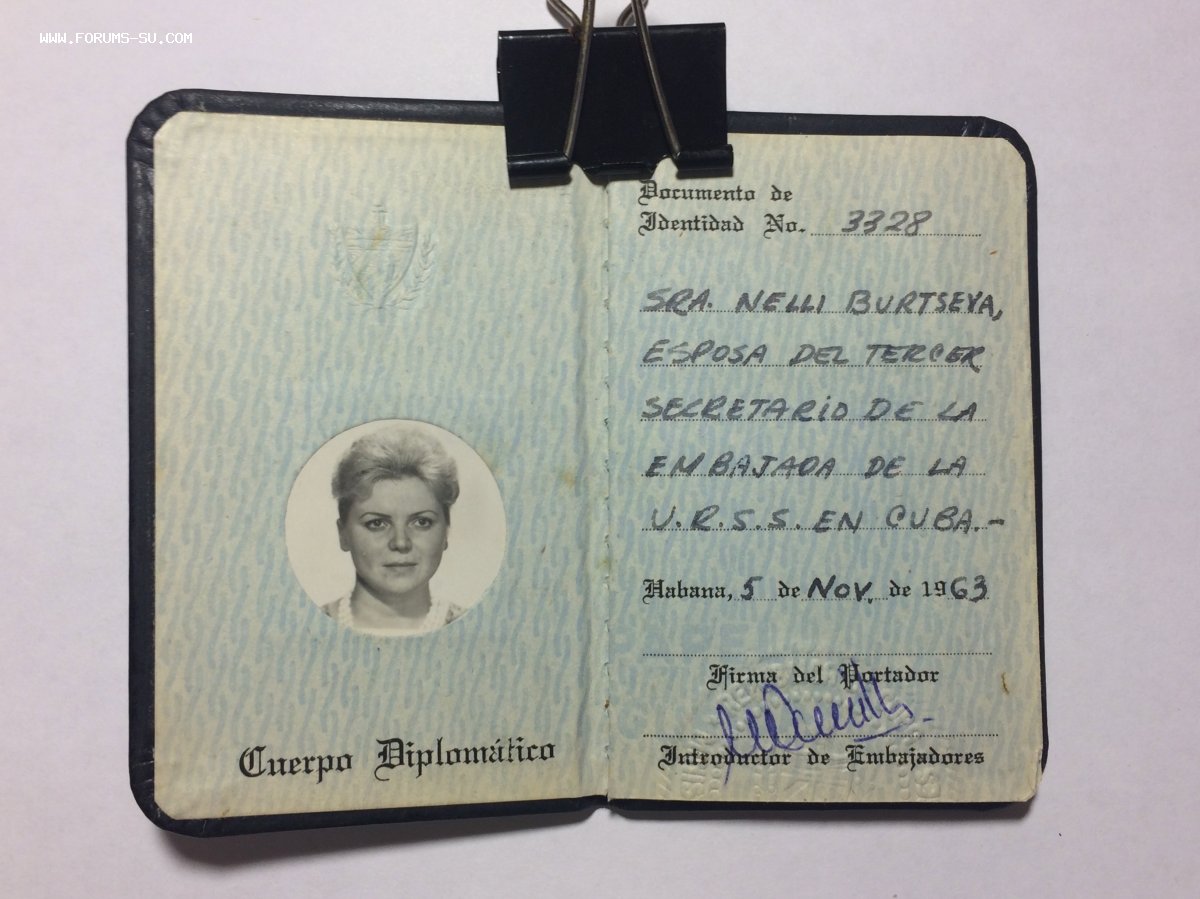 WWW.FORUMS-SU.COM
Cuerpo Diplomático
Documento de
Identidad No. 3328
SRA. NELLI BURTSEVA,
ESPOSA DEL TERCER
SECRETARIO DE LA
EMBAJADA DE LA
U.R.S.S. EN CUBA.-
Habana, 5 de NOV. de 1963
Firma del Portador
Introductor de Embajadores